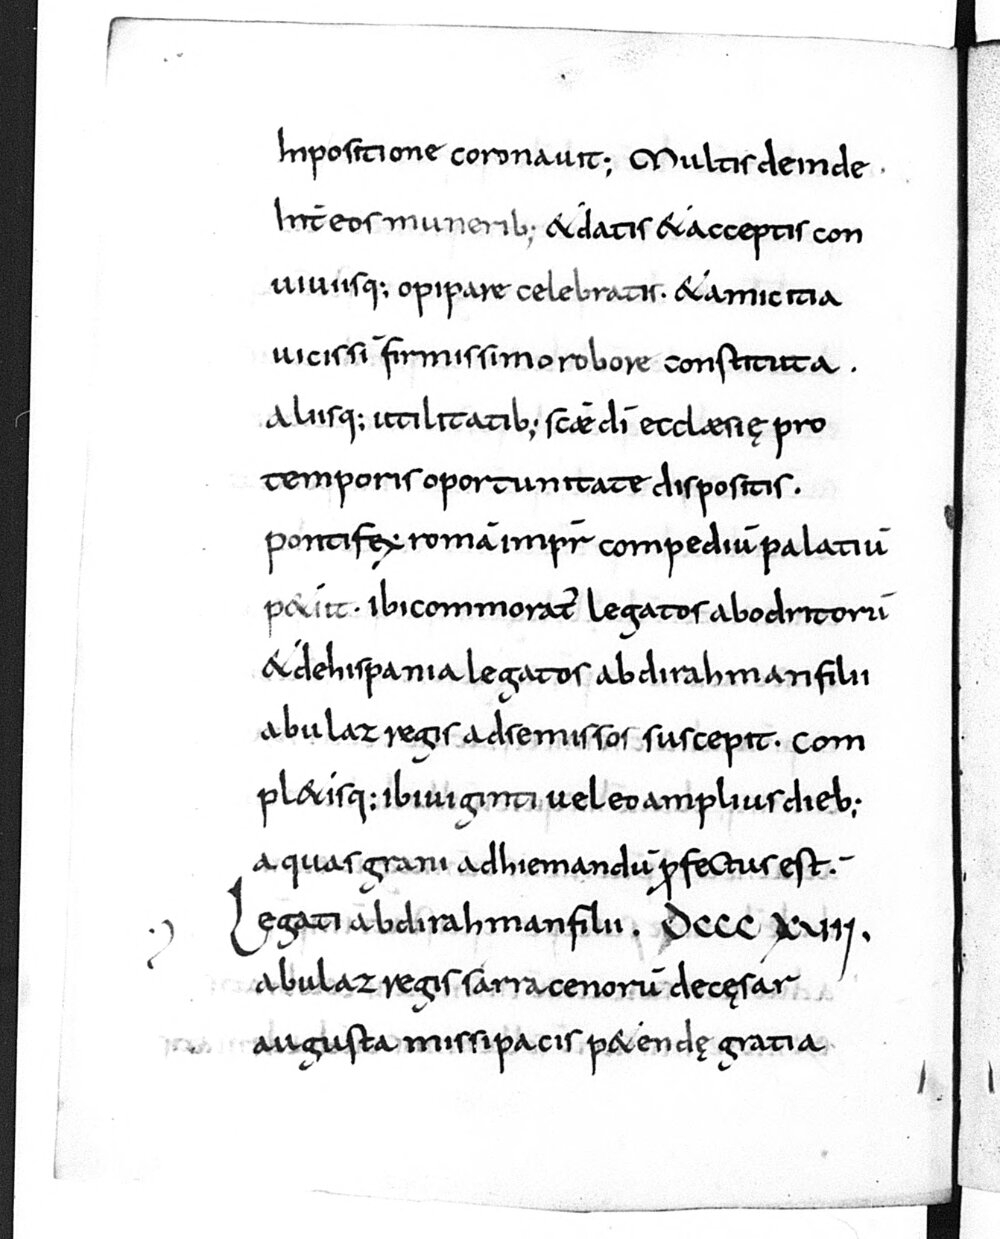 Inpositione coronauit; Multis deinde.
Int̄ eos munerib; & datis & acceptis con
uiuiisq; opipare celebratis. & amicitia
uicissī firmissimo robore constituta.
aliisq; utilitatib; scǣ dī ecclæsię pro
temporis oportunitate dispositis.
pontifęx romā imp̄r compediū palatiū
p&iit. ibi commorat᷑ legatos abodritorū
& dehispania legatos abdirahman filii
abulaz regis adse missos suscepit. com
pl&isq; ibi uiginti uel eo amplius dieb;
aquasgrani adhiemandū ꝓfectus est.
Legati abdirahman filii. DCCC XVIII.
abulaz regis sarracenorū decęsar
augusta missi pacis p&endę gratia